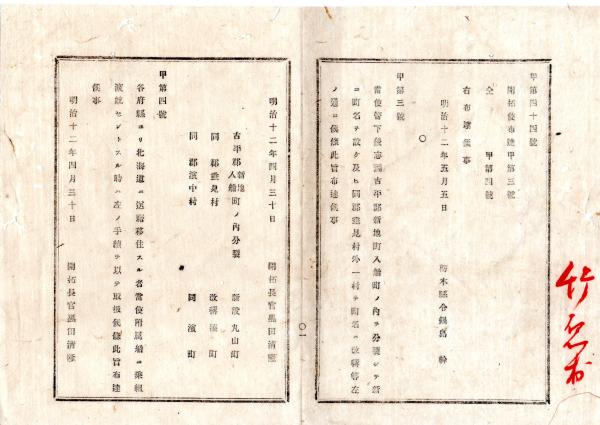 甲第四十四號
開拓使布達甲第三號
仝 甲第四號
右布達候事
明治十二年五月五日 栃木縣令鍋島 幹
○
甲第三號
當使管下後志國古平郡新地町入船町ノ內ヲ分裂シテ新
ニ町名ヲ設ケ及ヒ同郡群來村外一村ヲ町名ニ改稱候左
ノ通ニ候條此旨布達候事
明治十二年四月三十日 開拓長官黒田清隆
古平郡新地町入船町ノ內分裂 新設丸山町
同 郡 見村 改稱 町
同 郡濱中村 同 濱町
甲第四號
各府縣ヨリ北海道ニ送籍移住スル者當使附屬船ニ乘組
渡航セントスル時ハ左ノ手續ヲ以テ取扱候條此旨布達
候事
明治十二年四月三十日 開拓長官黒田清隆